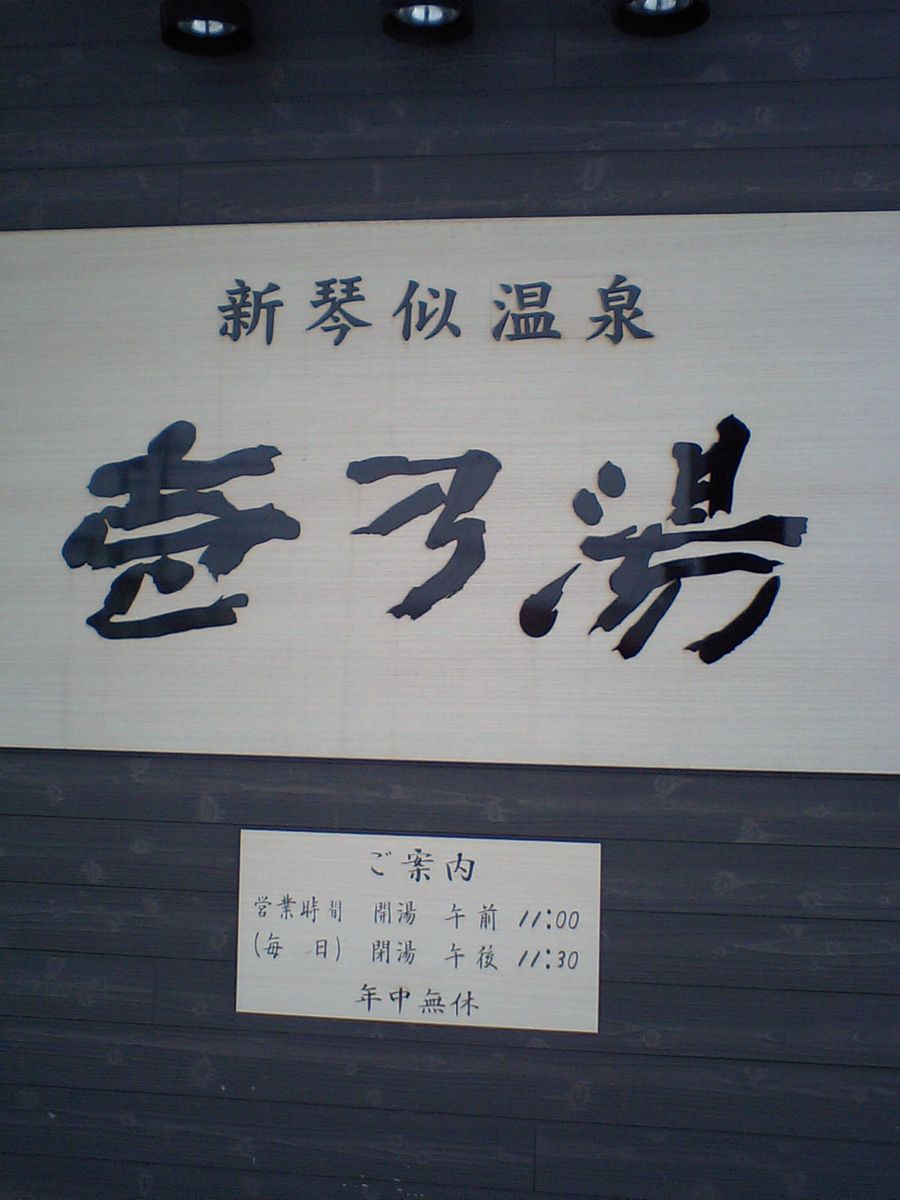 新琴似温泉
壱乃湯
ご案内
営業時間 開湯 午前 11:00
(毎 日) 閉湯 午後 11:30
年中無休